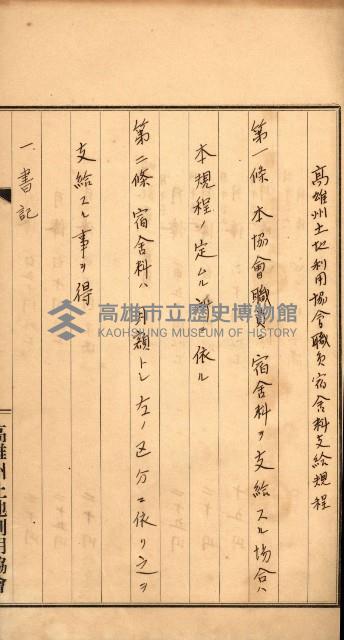 高雄州土地利用協會職員宿舍料支給規程
第一條 本協會職員ニ宿舍料ヲ支給スル場合ハ
本規程ノ定ムル所ニ依ル
第二條 宿舍料ハ月額トシ左ノ区分ニ依リ之ヲ
支給スル事ヲ得
一. 書記
高雄州土地利用協會
高雄市立歷史博物館
KAOHSIUNG MUSEUM OF HISTORY